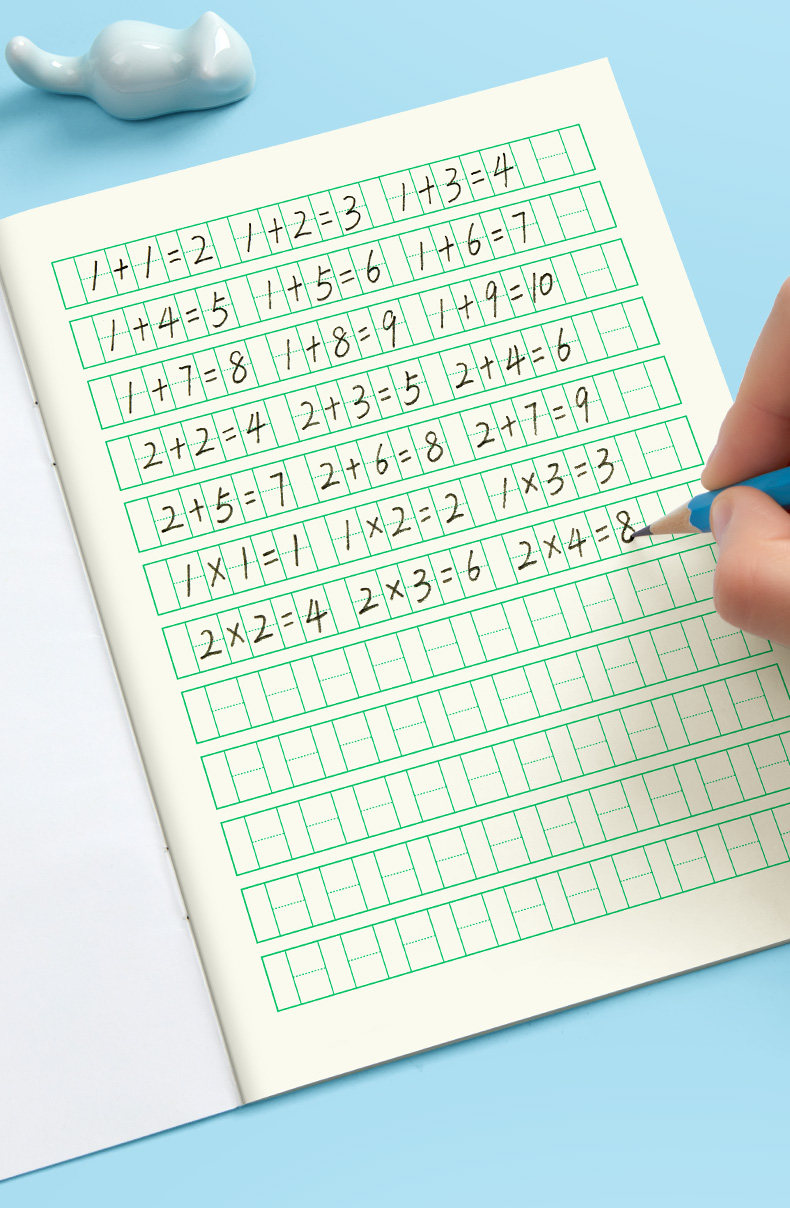 1+1=2 1+2=3 1+3=4
1+4=5 1+5=6 1+6=7
1+7=8 1+8=9 1+9=10
2+2=4 2+3=5 2+4=6
2+5=7 2+6=8 2+7=9
1×1=1 1×2=2 1×3=3
2×2=4 2×3=6 2×4=8